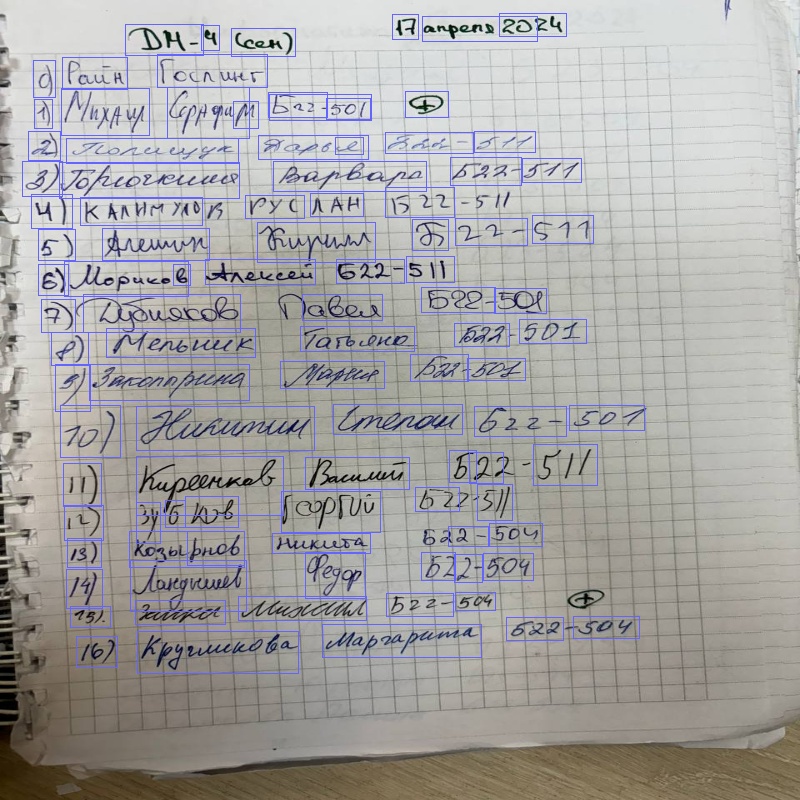 ДМ-4 (сем) 17 апреля 2024
0) Райн Гослинг
1) Михаил Серафим Б22-501 +
2) Полищук Дарья Б22-511
3) Горючкина Варвара Б22-511
4) КАЛИМУЛОВ РУСЛАН Б22-511
5) Алешин Кирилл Б22-511
6) Мориков Алексей Б22-511
7) Дубняков Павел Б22-501
8) Мельник Татьяна Б22-501
9) Мария Б22-501
10) Никитин Степан Б22-501
11) Киреенков Василий Б22-511
12) Зубков Георгий Б22-511
13) Козырнов Никита Б22-504
14) Ландышев Федор Б22-504
15). Зайка Михаил Б22-504 +
16) Кругликова Маргарита Б22-504